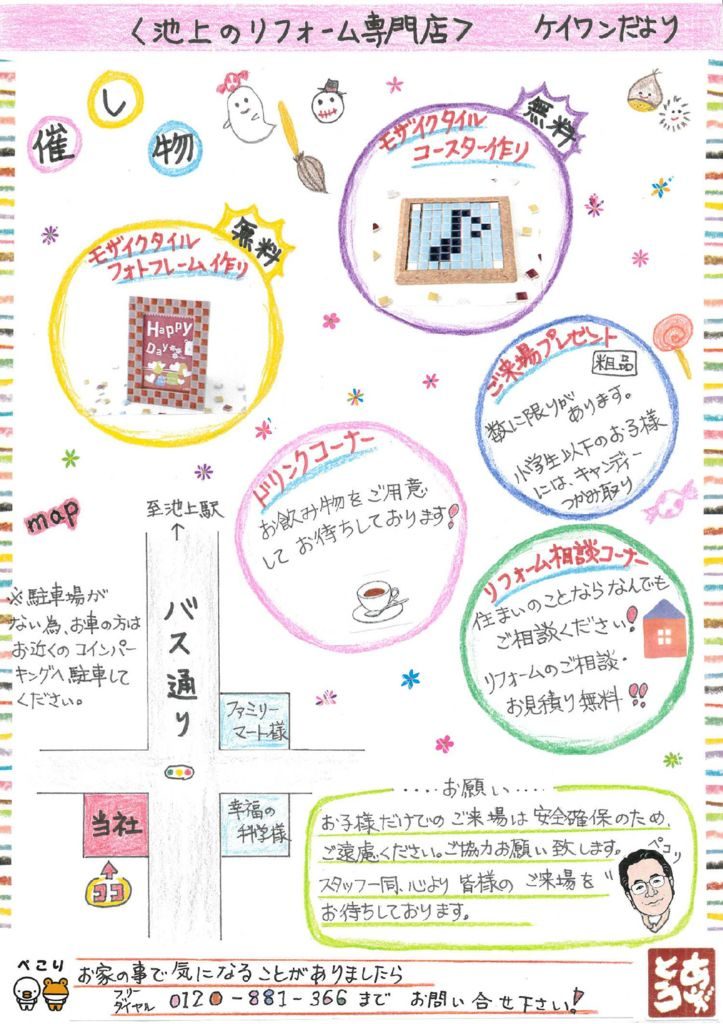 〈池上のリフォーム専門店〉 ケイワンだより
催し物
無料
モザイクタイル
コースター作り
無料
モザイクタイル
フォトフレーム作り
Happy
Day
ご来場プレゼント
粗品
数に限りがあります。
小学生以下のお子様
には、キャンディー
つかみ取り
ドリンクコーナー
お飲み物をご用意
してお待ちしております!
リフォーム相談コーナー
住まいのことならなんでも
ご相談ください!
リフォームのご相談・
お見積り無料!!
map
至池上駅
↑
※駐車場が
ない為、お車の方は
お近くのコインパー
キングへ駐車して
ください。
バス通り
ファミリー
マート様
当社
ココ
幸福の
科学様
....お願い....
お子様だけでのご来場は安全確保のため、
ご遠慮ください。ご協力お願い致します。
スタッフ一同、心より皆様のご来場を
お待ちしております。
ペコリ
ぺこり
お家の事で気になることがありましたら
フリーダイヤル 0120-881-366まで お問い合せ下さい!